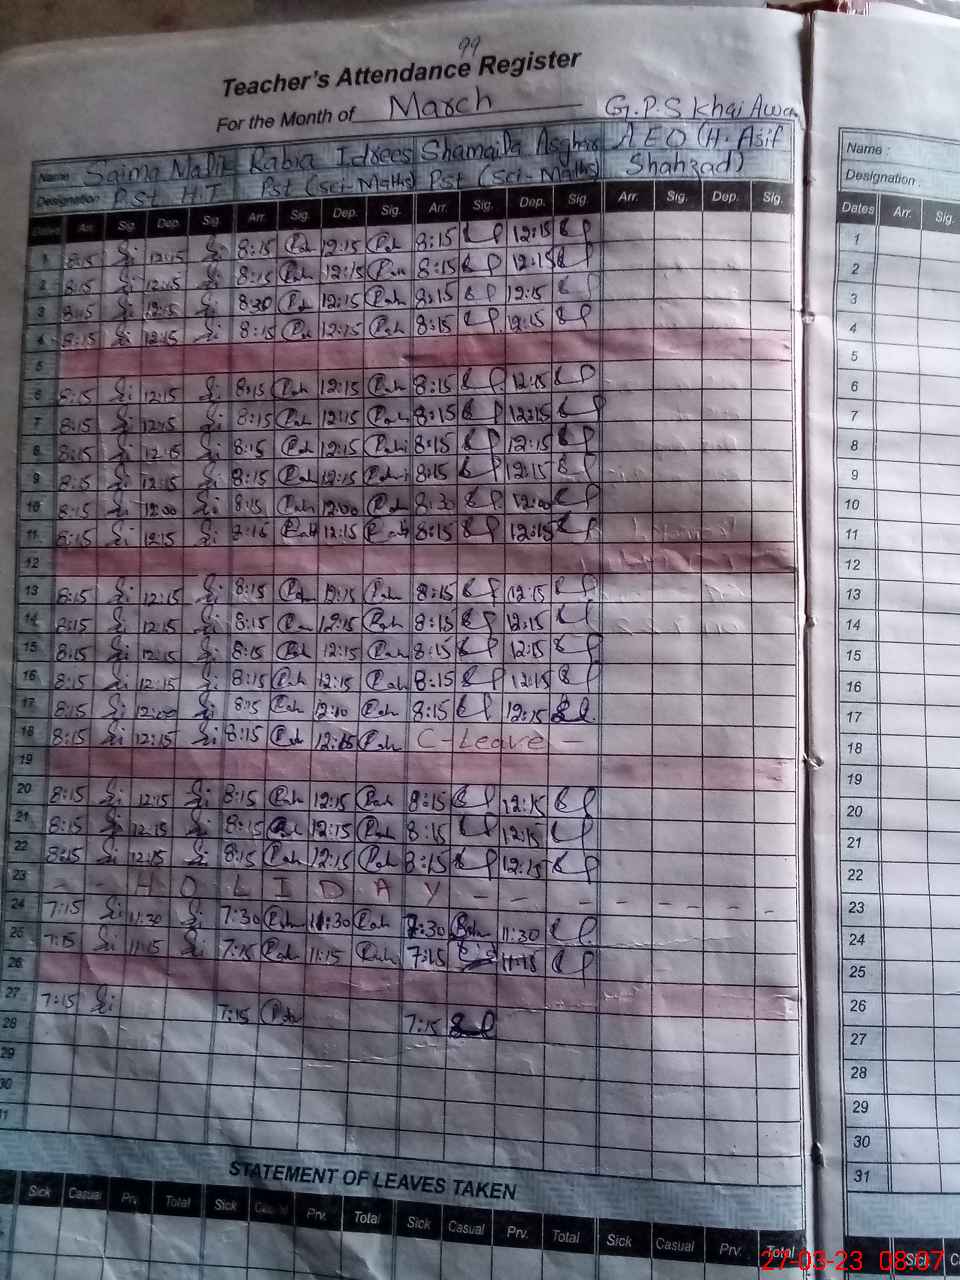 99
Teacher's Attendance Register
For the Month of March G.P.S Khai Awan
Name Saima Malik Rabia Idrees Shamaila Asghar AEO (H. Asif Shahzad)
Designation P.St H.T Pst (Sci-Maths) Pst (Sci-Maths)
Dates Arr. Sig. Dep. Sig. Arr. Sig. Dep. Sig. Arr. Sig. Dep. Sig. Arr. Sig. Dep. Sig.
1 8:15 12:15 8:15 12:15 8:15 12:15
2 8:15 12:15 8:15 12:15 8:15 12:15
3 8:15 12:15 8:30 12:15 8:15 12:15
4 8:15 12:15 8:15 12:15 8:15 12:15
5
6 8:15 12:15 8:15 12:15 8:15 12:15
7 8:15 12:15 8:15 12:15 8:15 12:15
8 8:15 12:15 8:15 12:15 8:15 12:15
9 8:15 12:15 8:15 12:15 8:15 12:15
10 8:15 12:00 8:15 12:00 8:30 12:00
11 8:15 12:15 8:15 12:15 8:15 12:15
12
13 8:15 12:15 8:15 12:15 8:15 12:15
14 8:15 12:15 8:15 12:15 8:15 12:15
15 8:15 12:15 8:15 12:15 8:15 12:15
16 8:15 12:15 8:15 12:15 8:15 12:15
17 8:15 12:00 8:15 12:10 8:15 12:15
18 8:15 12:15 8:15 12:15 C-Leave -
19
20 8:15 12:15 8:15 12:15 8:15 12:15
21 8:15 12:15 8:15 12:15 8:15 12:15
22 8:15 12:15 8:15 12:15 8:15 12:15
23 - - H O L I D A Y - - - - - - -
24 7:15 11:30 7:30 11:30 7:30 11:30
25 7:15 11:15 7:15 11:15 7:15 11:15
26
27 7:15 7:15 7:15
28
29
30
31
STATEMENT OF LEAVES TAKEN
Sick Casual Prv. Total Sick Casual Prv. Total Sick Casual Prv. Total Sick Casual Prv. Total
Name :
Designation :
Dates Arr. Sig.
1
2
3
4
5
6
7
8
9
10
11
12
13
14
15
16
17
18
19
20
21
22
23
24
25
26
27
28
29
30
31
Sick
27-03-23 08:07